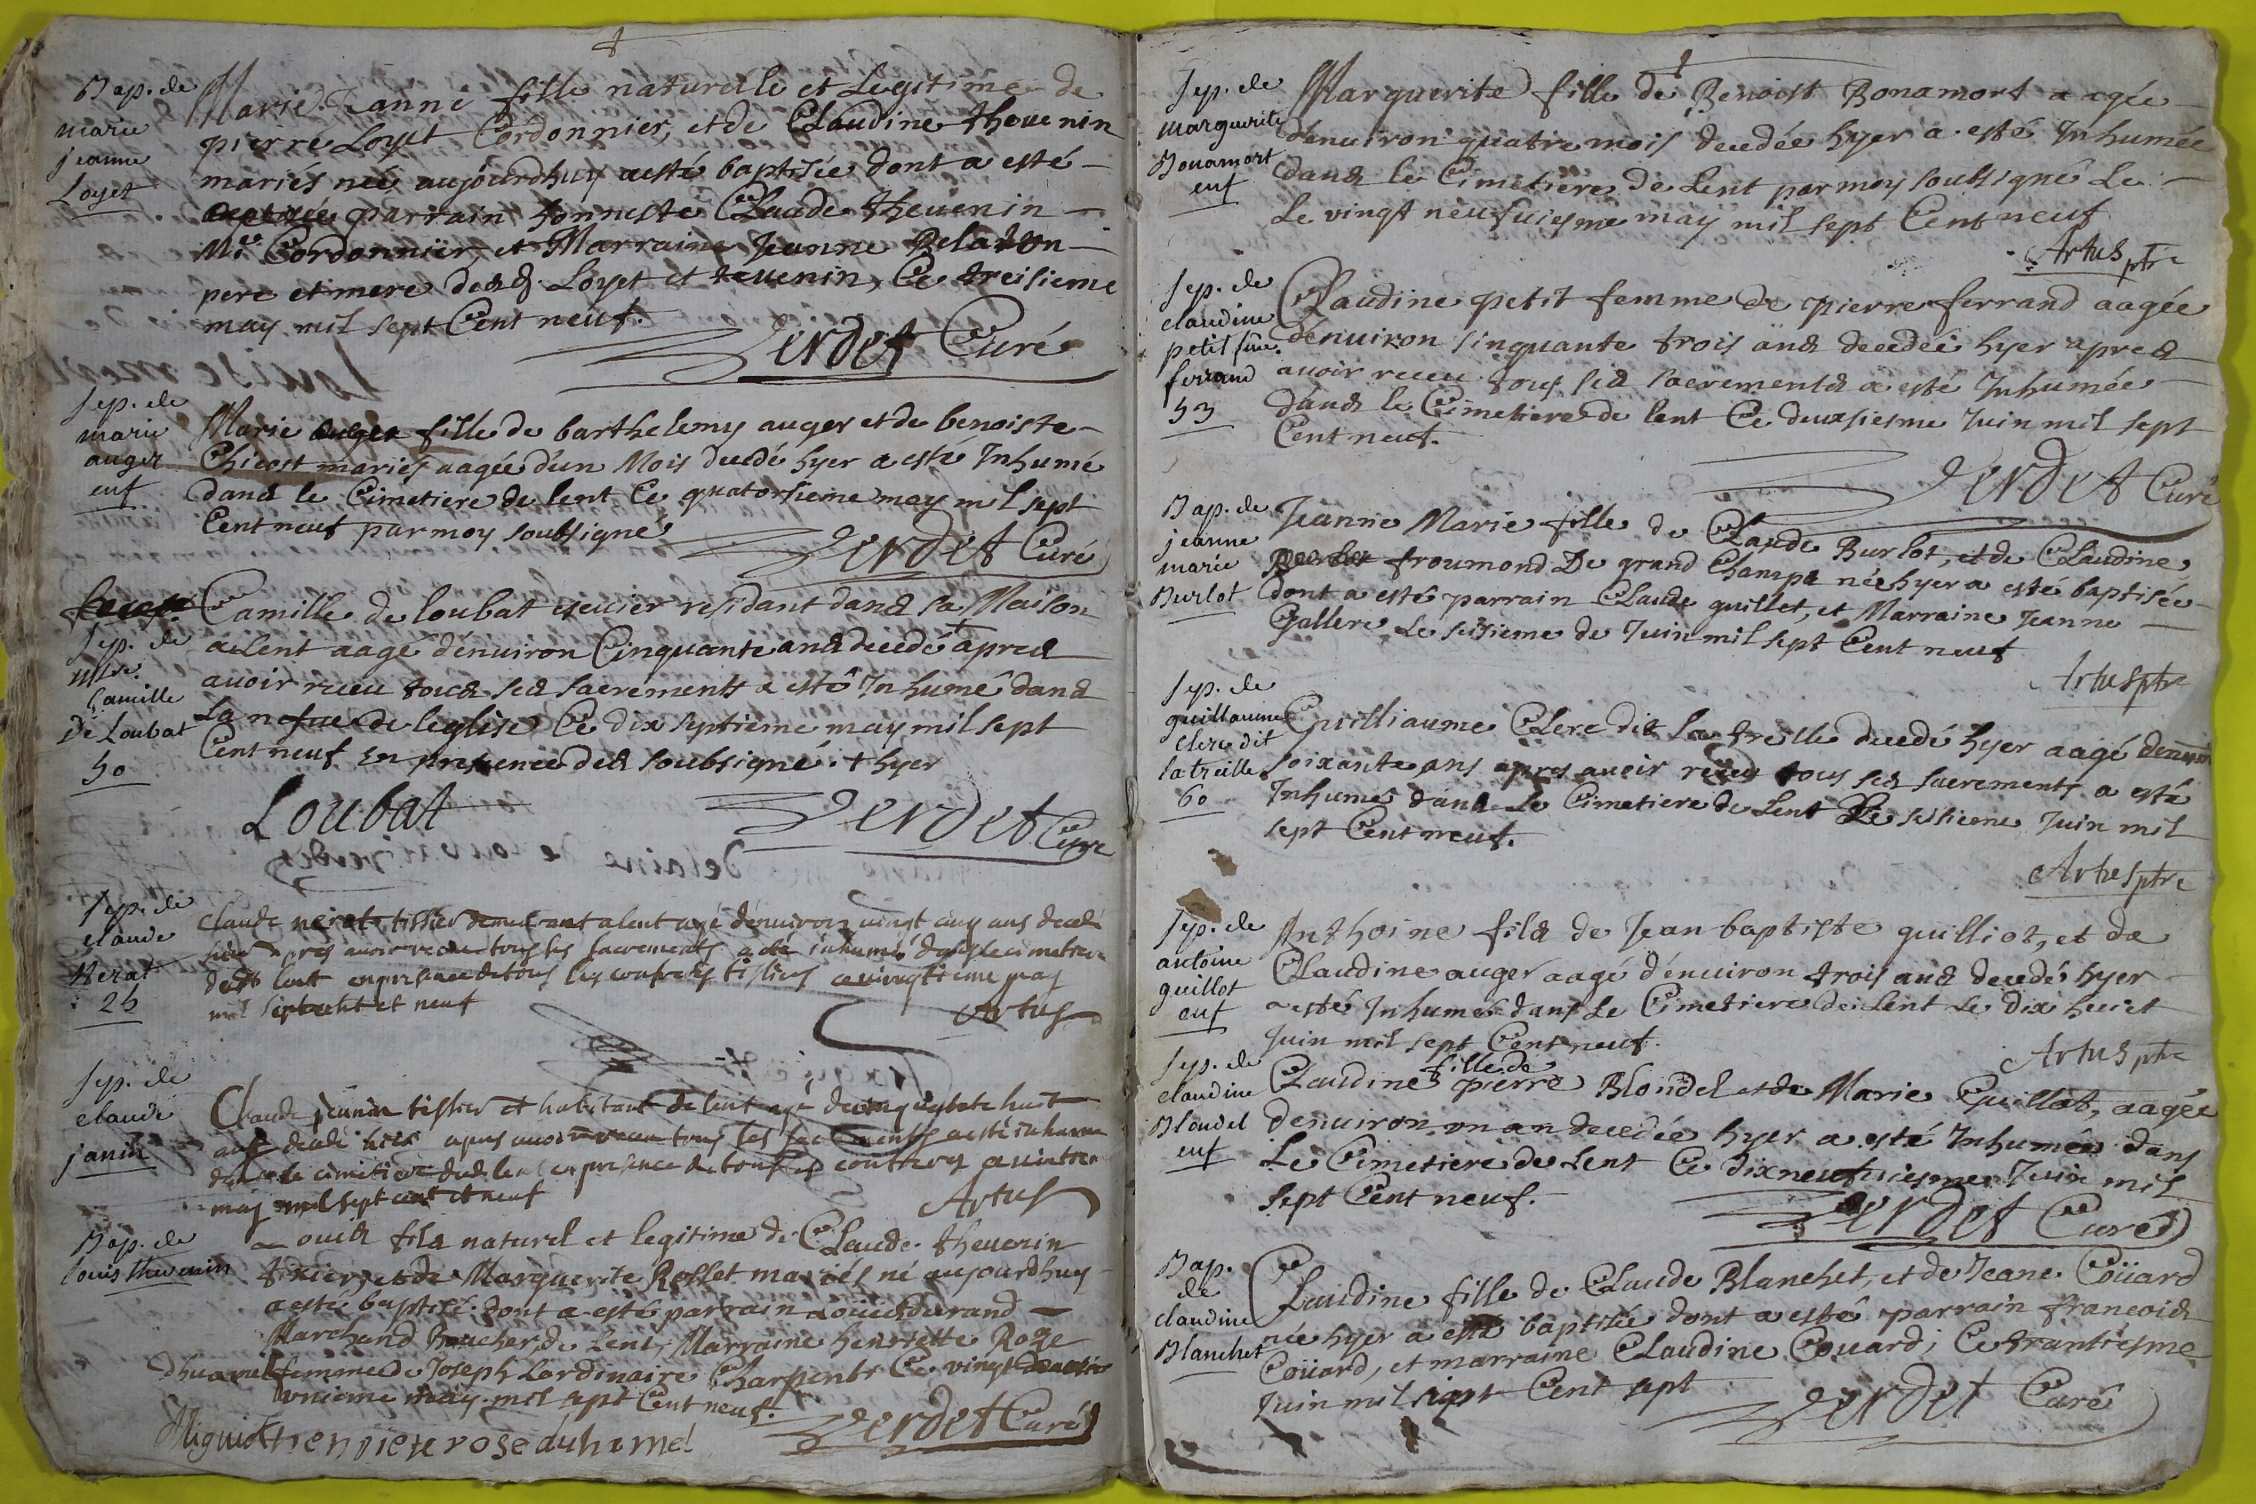 Bap. de
marie
jeanne
Loyet
Marie Jeanne fille naturelle et Legitime de
pierre Loyet Cordonnier, et de Claudine thevenin
mariés neé aujourdhuy a esté baptisée dont a esté
parrain honneste Claude thevenin
Me Cordonnier, et Marraine Jeanne
pere et mere desd Loyet et tevenin, Ce treisieme
may mil sept Cent neuf.
Verdet Curé
Sep. de
marie
auger
enf
Marie auger fille de barthelemy auger et de benoiste
Chicost mariés aagée d'un Mois decedé hyer a esté Inhumé
dans le Cimetiere de lent Ce quatorsieme may mil sept
Cent neuf par moy soubsigné
Verdet Curé
Sep. de
Mre.
Camille
De Loubat
50
Camille de loubat escuier residant dans sa Maison
a Lent aagé d'environ Cinquante ans decedé + apres
avoir receu tous ses sacrements a esté Inhumé dans
La nefue de leglise Ce dix septieme may mil sept
Cent neuf En presence des soubsigné. + hyer
Loubat
Verdet Curé
Sep. de
claude
Nerat
25
Claude nerat tissier demeurant a lent agé d'environ vingt cinq ans decedé
hier apres avoir receu tous les sacrements a été inhumé dans le cimetiere
dudt lent en presence de tous les confreres tissiers ce vingtieme may
mil sept cent et neuf
Artus
Sep. de
claude
janin
Claude jeunin tissier et habitant de lent agé de cinquante huit
ans decedé hier apres avoir receu tous les sacrements a esté inhumé
dans le cimetiere dud lent en presence de tous les confreres ce
may mil sept cent et neuf
Artus
Bap. de
louis thevenin
Louis fils naturel et legitime de Claude thevenin
et de Marguerite Rollet mariés né aujourdhuy
a esté baptisé dont a esté parrain Louis durand
Marchand Boucher de Lent, Marraine henriette Roze
dhuamel femme de Joseph Lordinaire Charpentr Ce vingt
unieme may mil sept Cent neuf.
Verdet Curé
henriete rose duhamel
Sep. de
marguerite
Bonamort
enf
Marguerite fille de Benoist Bonamort a agée
d'environ quatre mois decedée hyer a esté Inhumée
dans le Cimetiere de Lent par moy soubsigné Le
Le vingt neufviesme may mil sept Cent neuf
Artus ptre
Sep. de
claudine
petit fme.
ferrand
53
Claudine petit femme de pierre ferrand aagée
d'environ sinquante trois ans decedée hyer apres
avoir receu tous ses sacrements a esté Inhumée
dans le Cimetiere de lent Ce deuxsiesme Juin mil sept
Cent neuf.
Verdet Curé
Bap. de
jeanne
marie
Burlot
Jeanne Marie fille de Claude Burlot, et de Claudine
froumond De grand Champs née hyer a esté baptisée
dont a esté parrain Claude guillet, et Marraine Jeanne
Gallere Le seisieme de Juin mil sept Cent neuf
Artus ptre
Sep. de
guillaume
clerc dit
latreille
60
Guilliaume Clerc dit La treille decedé hyer aagé denviron
soixante ans apres avoir receu tous ses sacrements a esté
Inhumé dans Le Cimetiere de Lent Le seisieme Juin mil
sept Cent neuf.
Artus ptre
Sep. de
antoine
guillot
enf
Anthoine fils de Jean baptiste guilliot, et de
Claudine auger aagé d'environ trois ans decedé hyer
a esté Inhumé dans Le Cimetiere de Lent Le dix huict
Juin mil sept Cent neuf.
Artus ptre
Sep. de
claudine
Blondel
enf
fille de
Claudine pierre Blondel et de Marie Guillot, aagée
denviron un an decedée hyer a esté Inhumée dans
Le Cimetiere de Lent Ce dixneufviesme Juin mil
sept Cent neuf.
Verdet Curé
Bap.
de
claudine
Blanchet
Claudine fille de Claude Blanchet, et de Jeane Coüard
née hyer a esté baptisée dont a esté parrain francois
Coüard, et marraine Claudine Couard; Ce trantiesme
Juin mil sept Cent sept
Verdet Curé